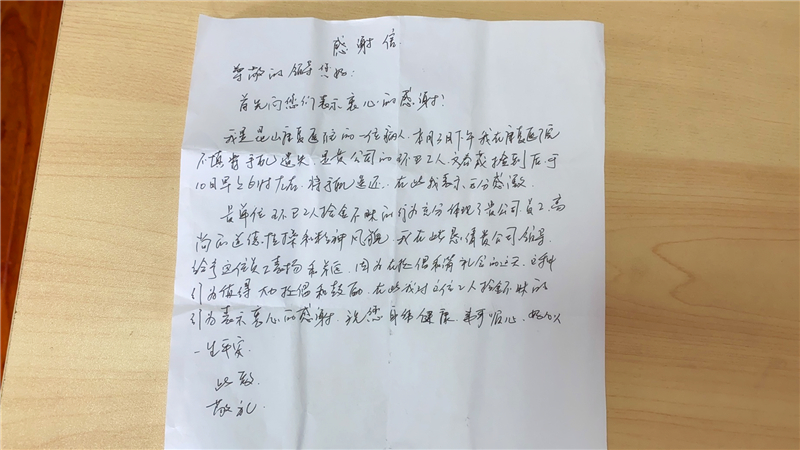 感谢信
尊敬的领导您好:
首先向您们表示衷心的感谢!
我是昆山康复医院的一位病人,本月9日下午我在康复医院
不慎将手机遗失,是贵公司的环卫工人 捡到后于
10日早上6时左右,将手机遗还,在此我表示万分感激。
贵单位环卫工人拾金不昧的行为充分体现了贵公司员工高
尚的道德情操和精神风貌,我在此恳请贵公司领导
给予这位员工表扬和关怀,因为在提倡和谐社会的这天,这种
行为值得大力提倡和鼓励,在此我对这位工人拾金不昧的
行为表示衷心的感谢,祝您身体健康,事事顺心,好人
一生平安。
此致
敬礼